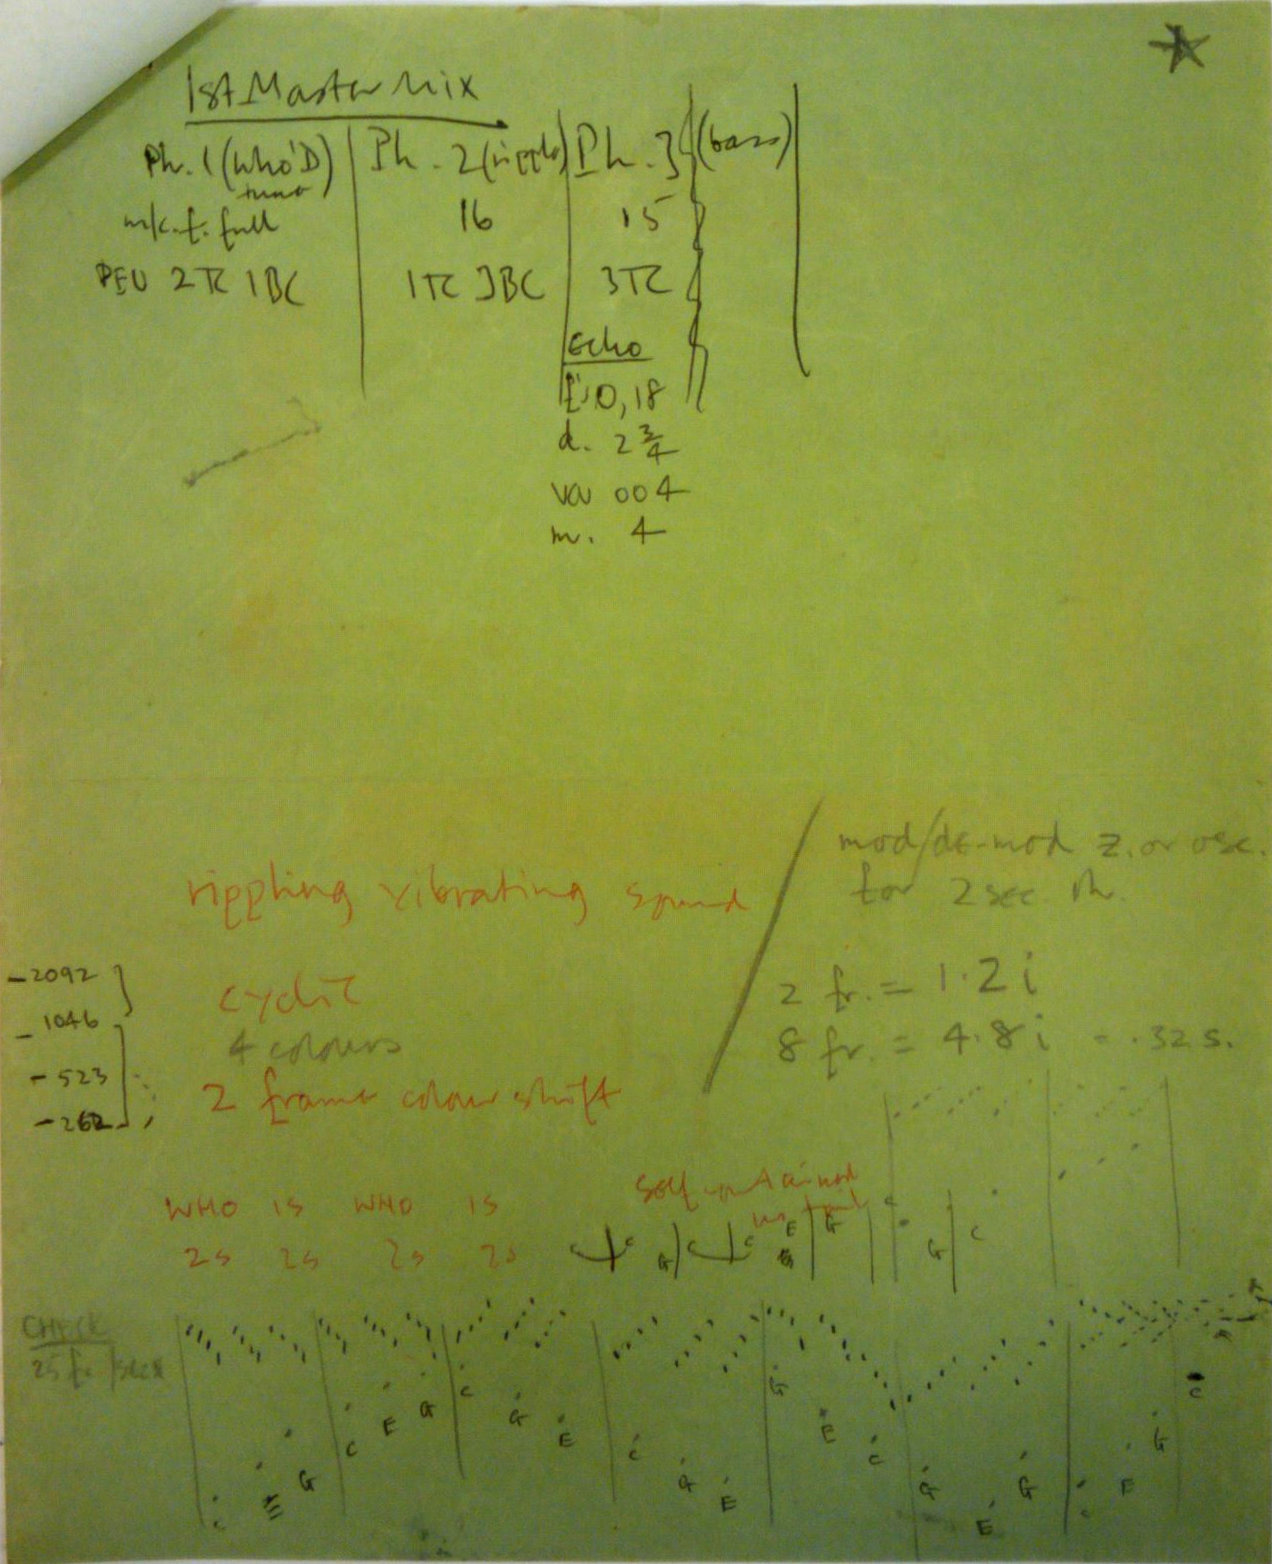 1st Master Mix
Ph. 1 (Who'D) Ph. 2 (ripple) Ph. 3 (bass)
full 16 15
PEU 2TC 1BC 1TC 3BC 3TC
Echo
10, 18
d. 2 3/4
004
m. 4
mod/de-mod z. or osc.
for 2 sec. Ph.
rippling vibrating sound
-2092
cyclic
2 fr. = 1.2 i
-1046
4 colours
8 fr. = 4.8 i = .32 s.
-523
2 frame colour shift
-262
WHO IS WHO IS
self contained
2s 2s 2s 2s
C G C E G G C
G
CHECK
25 fr /sec
C E G C E G C G E C G E G E C G E G C E G C